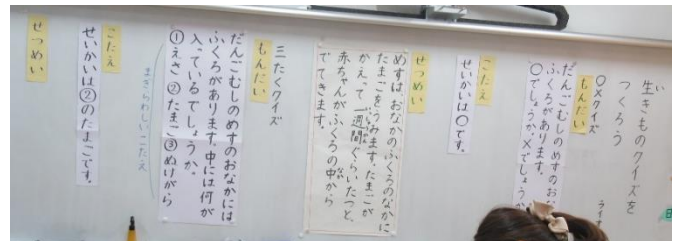 生きものクイズを
つくろう
〇×クイズ
もんだい
だんごむしのめすのおなかには
ふくろがあります。
〇でしょうか、×でしょうか
こたえ
せいかいは〇です。
せつめい
めすは、おなかのふくろのなかに
たまごをうみます。たまごが
かえって一週間ぐらいたつと、
赤ちゃんがふくろの中から
でてきます。
三たくクイズ
もんだい
だんごむしのめすのおなかには
ふくろがあります。中には何が
入っているでしょうか。
①えさ ②たまご ③ぬけがら
まぎらわしいこたえ
こたえ
せいかいは②のたまごです。
せつめい